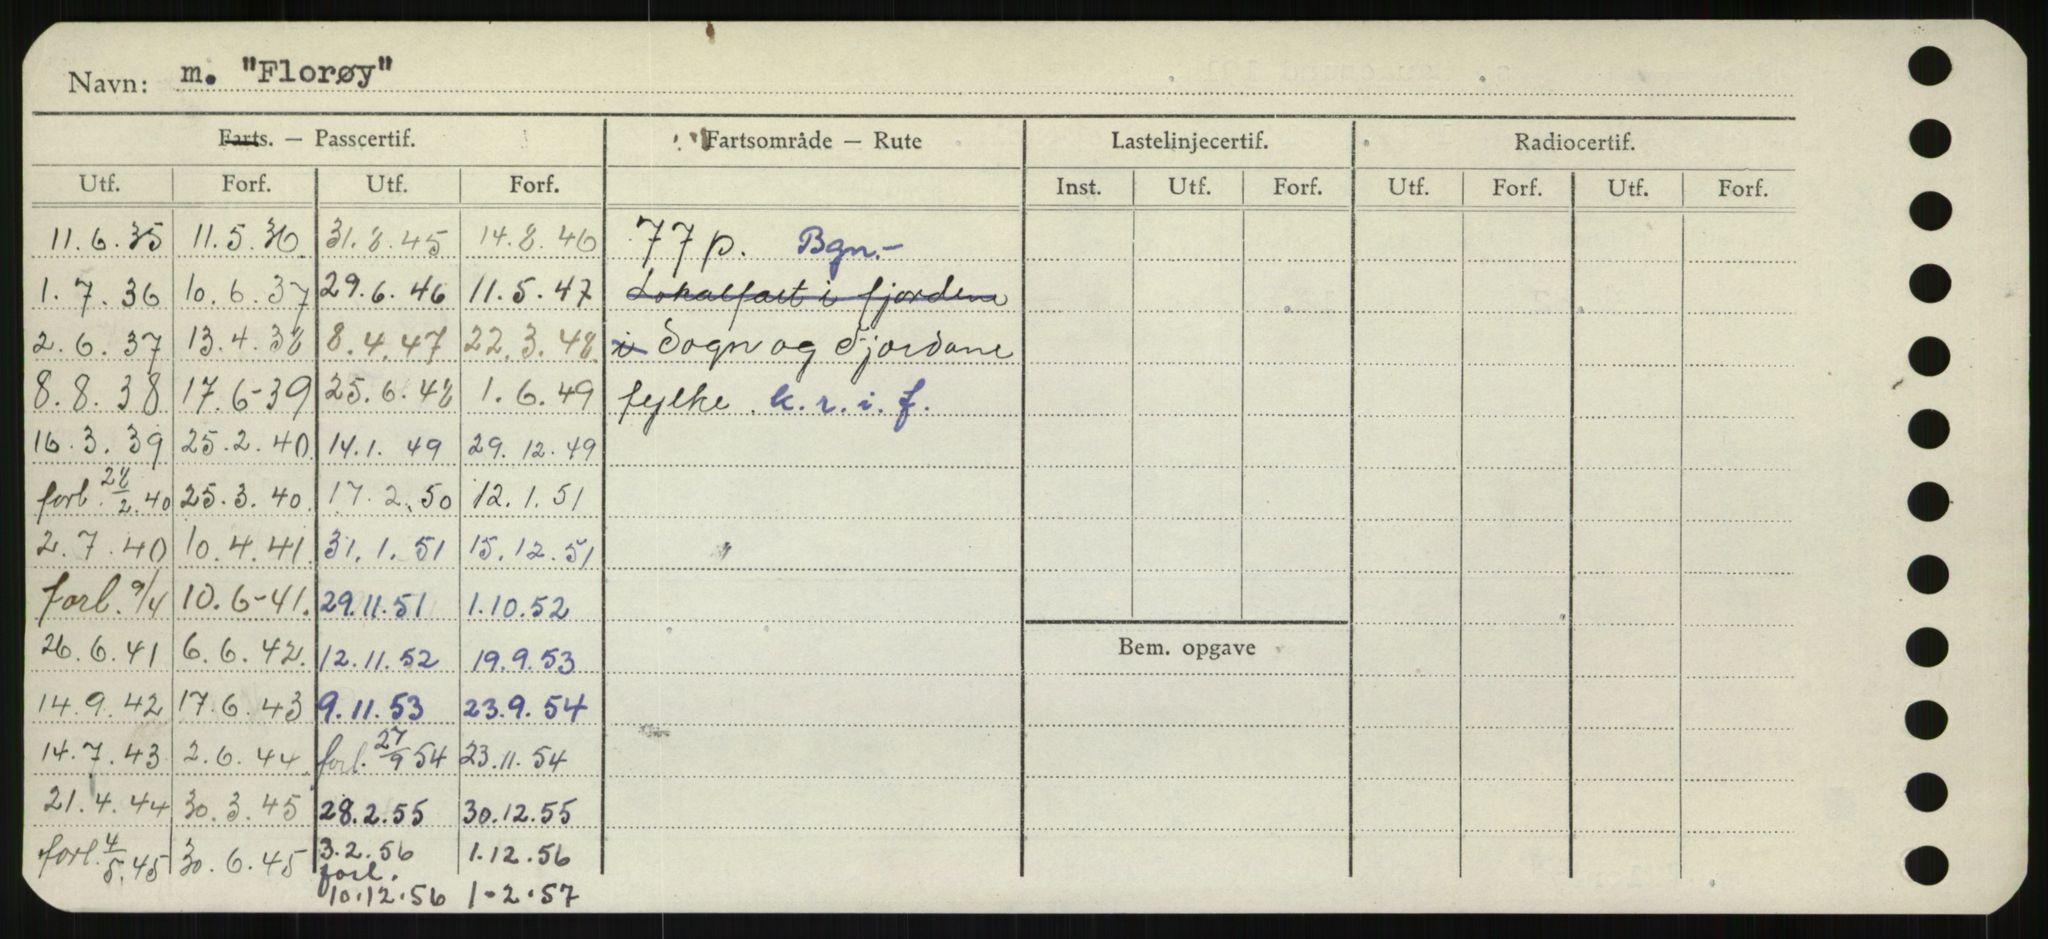 Navn: m. "Florøy"
Farts. — Passcertif. Fartsområde — Rute Lastelinjecertif. Radiocertif.
Utf. Forf. Utf. Forf. Inst. Utf. Forf. Utf. Forf. Utf. Forf.
11.6.35 11.5.36 31.8.45 14.8.46 77 p. Bgn.-
1.7.36 10.6.37 29.6.46 11.5.47 Lokalfart i fjordene
2.6.37 13.4.38 8.4.47 22.3.48 i Sogn og Fjordane
8.8.38 17.6-39 25.6.48 1.6.49 fylke. k.r.i.f.
16.3.39 25.2.40 14.1.49 29.12.49
forl. 28/2.40 25.3.40 17.2.50 12.1.51
2.7.40 10.4.41 31.1.51 15.12.51
forl. 9/4 10.6-41. 29.11.51 1.10.52
26.6.41 6.6.42. 12.11.52 19.9.53
Bem. opgave
14.9.42 17.6.43 9.11.53 23.9.54
14.7.43 2.6.44 forl. 27/9 54 23.11.54
21.4.44 30.3.45 28.2.55 30.12.55
forl. 4/5.45 30.6.45 3.2.56 1.12.56
forl.
10.12.56 1-2.57